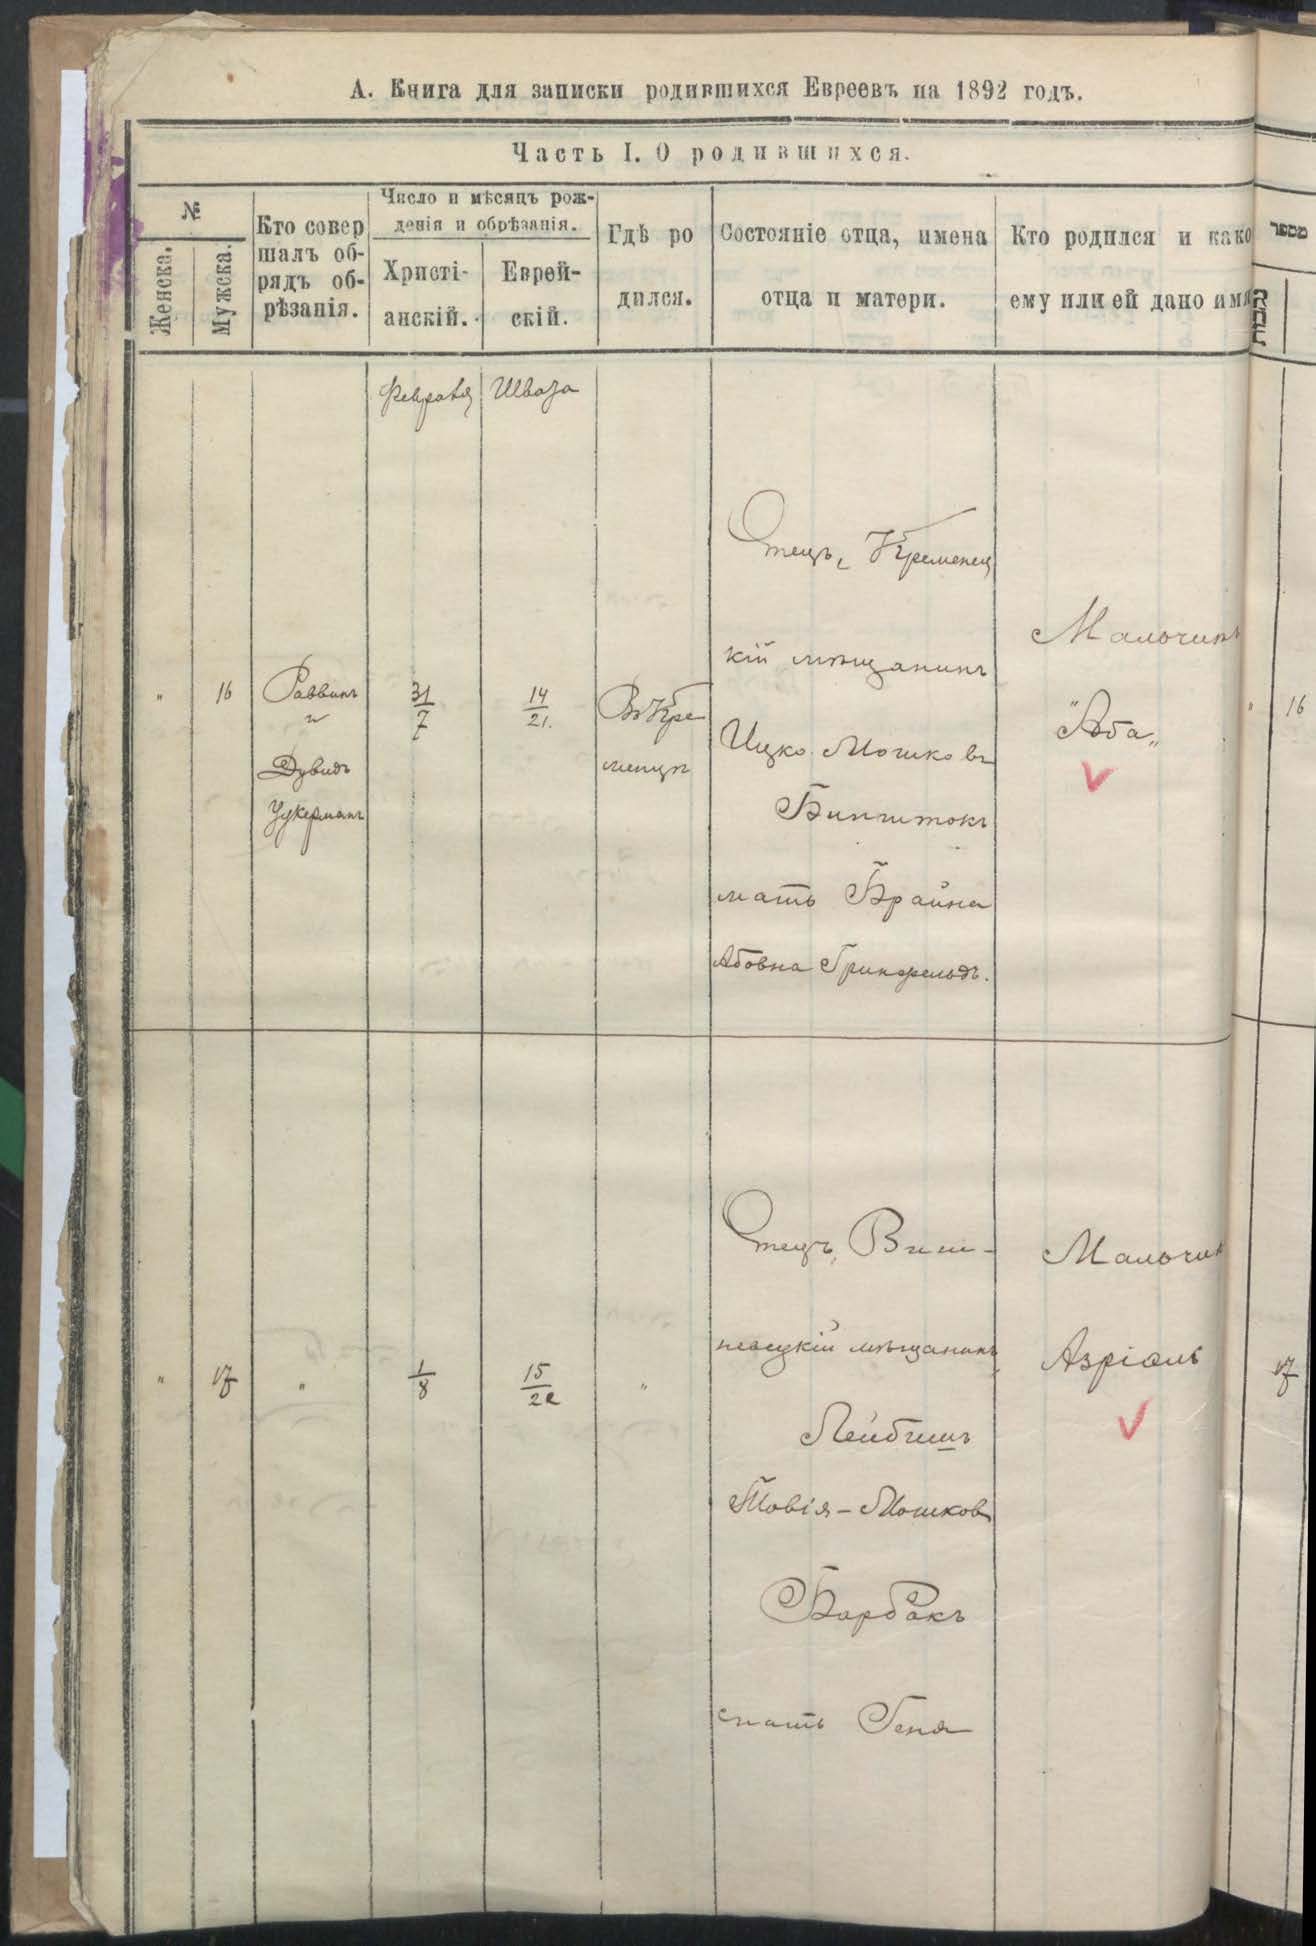 А. Книга для записки родившихся Евреевъ на 1892 годъ.
Часть I. О родившихся.
№
Женска.
Мужска.
Кто совер
шалъ об-
рядъ об-
рѣзанія.
Число и мѣсяцъ рож-
денія и обрѣзанія.
Христі-
анскій.
Еврей-
скій.
Гдѣ ро
дился.
Состояніе отца, имена
отца и матери.
Кто родился и како
ему или ей дано имя
מספר
נקבות
Февраля
Швата
"
16
Раввинъ
и
Дувидъ
Цукерманъ
31
7
14
21.
Въ Кре
менцѣ
Отецъ, Кременец
кій мѣщанинъ
Ицко Мошковъ
Бинштокъ
мать Брайна
Абовна Гринфельдъ.
Мальчикъ
"Аба„
"
16
"
17
"
1
8
15
22
"
Отецъ, Виш-
невецкій мѣщанинъ
Лейбишъ
Товія-Мошков
Барбакъ
мать Геня
Мальчик
Азріель
17